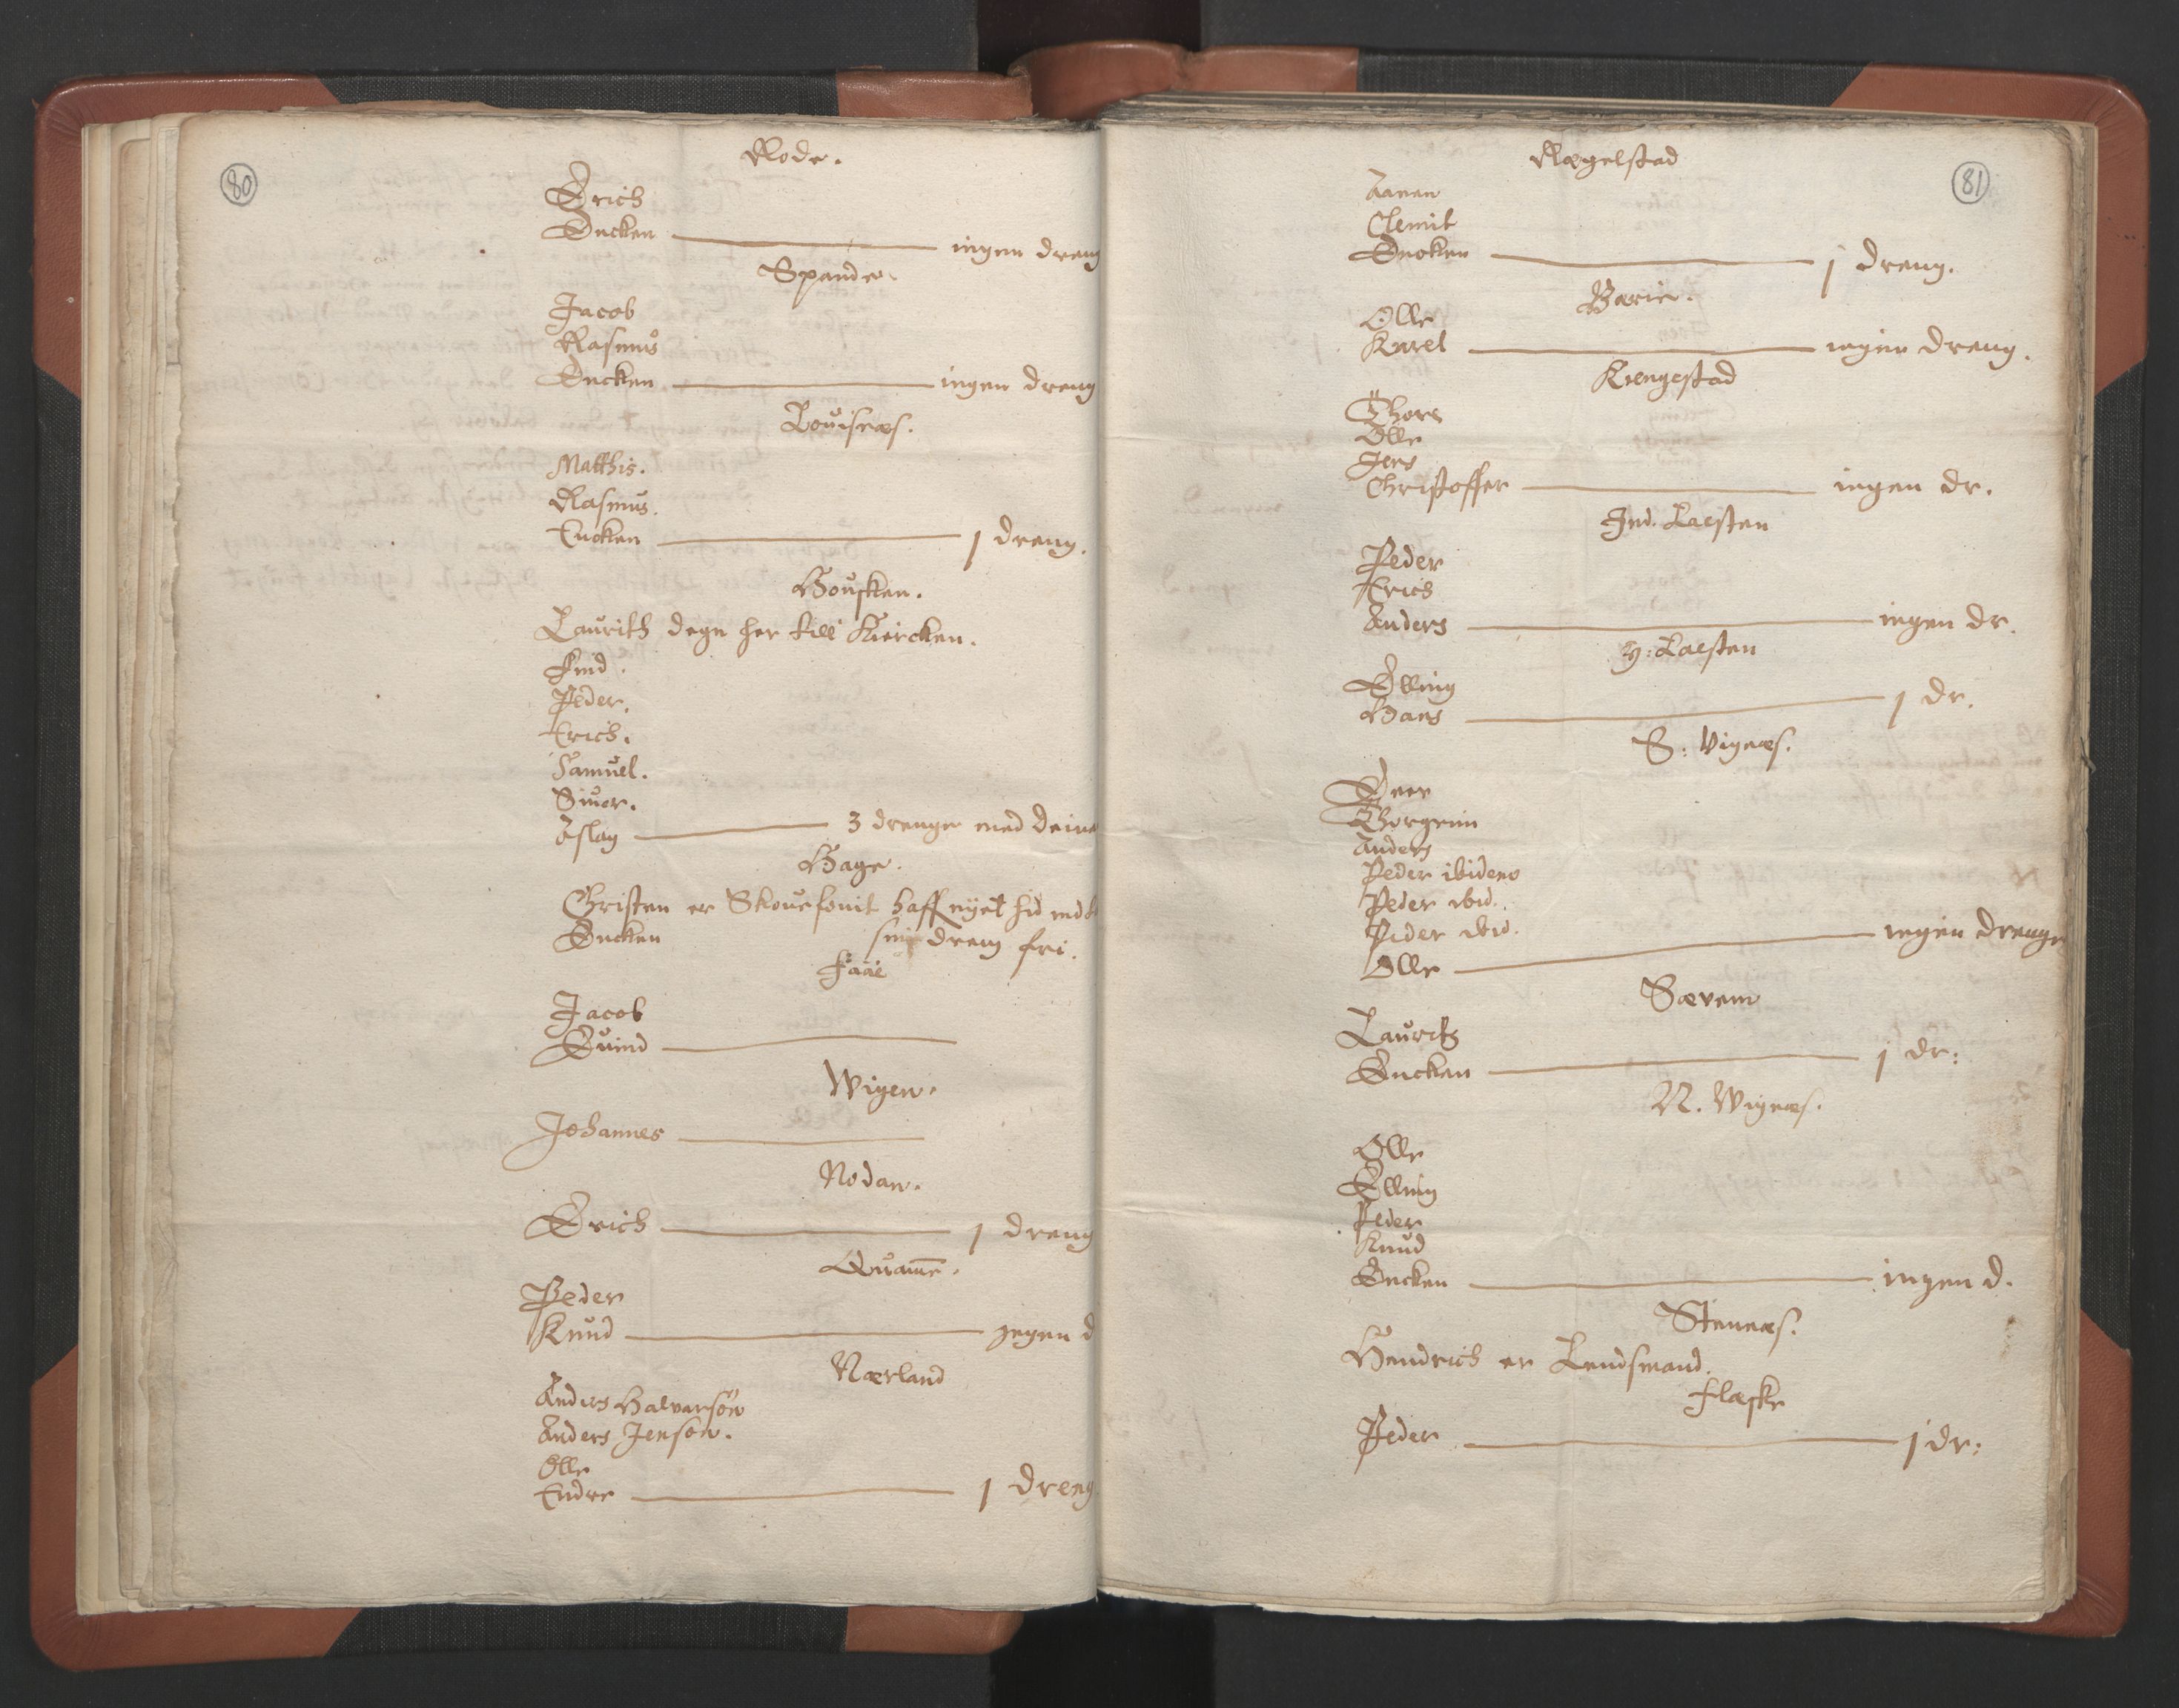 80
Rode.
Erich
Encken ingen dreng
Spande.
Jacob
Rasmus
Encken ingen dreng
Louisnes.
Matthis.
Rasmus.
Encken 1 dreng.
Housken.
Lauritz degn her till Kiercken.
Find.
Peder.
Erich.
Samuel.
Siuer.
Aslag 3 drenge med
Hage.
Christen er haff nyet hid
Encken sin dreng fri.
Jacob
Euind
Wigen.
Johannes
Nodan.
Erich 1 dreng
Quame.
Peder
Knud jngen d
Nærland
Anders Halvarsön
Anders Jensen.
Olle
Endre 1 dreng
81
Rægelstad
Aanen
Clemit
Encken 1 dreng.
Barie.
Olle
Karel ingen dreng.
Kongestad
Thore
Olle
Jens
Christoffer ingen dr.
Ind. Laesten
Peder
Erich
Anders ingen dr.
y: Laesten
Elling
Hans 1 dr.
S: Vignæs.
Thorgrim
Anders
Peder ibidem
Peder ibid.
Peder ibid.
Olle ingen drenge
Sævem
Lauritz
Encken 1 dr:
N. Wignæs.
Olle
Elling
Peder
Knud
Encken ingen d.
Stenæs.
Hendrich er Lendsmand.
Flaske
Peder 1 dr: